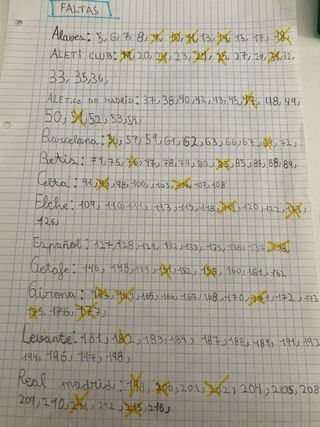 FALTAS
Alaves: 5, 6, 7, 8, 10, 13, 15, 17,
ALETI CLUB: 20, 23, 27, 29, 32,
33, 35, 36,
ALETICO DE MADRID: 37, 38, 40, 42, 43, 45, 48, 49,
50, 51, 52, 53, 54,
Barcelona: 57, 59, 61, 62, 63, 66, 67, 72,
Betis: 74, 75, 76, 77, 78, 79, 80, 83, 85, 87, 88, 89,
Celta: 91, 98, 100, 103, 107, 108
Elche: 109, 110, 111, 113, 115, 118, 120, 122,
126,
Español: 127, 128, 129, 132, 133, 135, 136, 137
Getafe: 146, 148, 151, 152, 158, 160, 161, 162
Girona: 163, 165, 166, 167, 168, 170, 172, 173
175, 176, 177,
Levante: 181, 182, 183, 184, 187, 188, 189, 191, 192
194, 196, 197, 198,
Real madrid: 200, 201, 202, 204, 205, 208
209, 210, 211, 212, 215, 216,